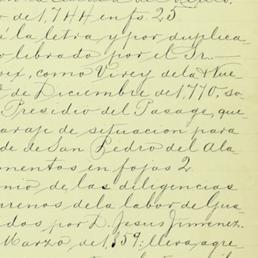 o de 1,744 en fs. 25
á la letra y por duplica
o librado por el Sr.
oix, como Virey de la Nue
de Diciembre de 1,770. so
Presidio del Pasage, que
araje de situacion para
de de San Pedro del Ala
omentos en fojas 2
onio, de las diligencias
rrenos de la labor de Gua
dos por D. Jesus Jimenez.
Marzo, de 1859: lleva agre